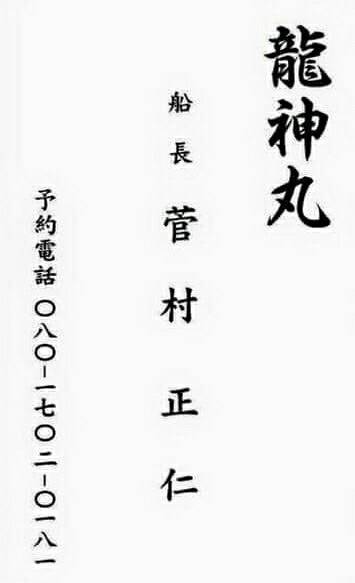 龍神丸
船長 菅村正仁
予約電話 〇八〇-一七〇二-〇一八一